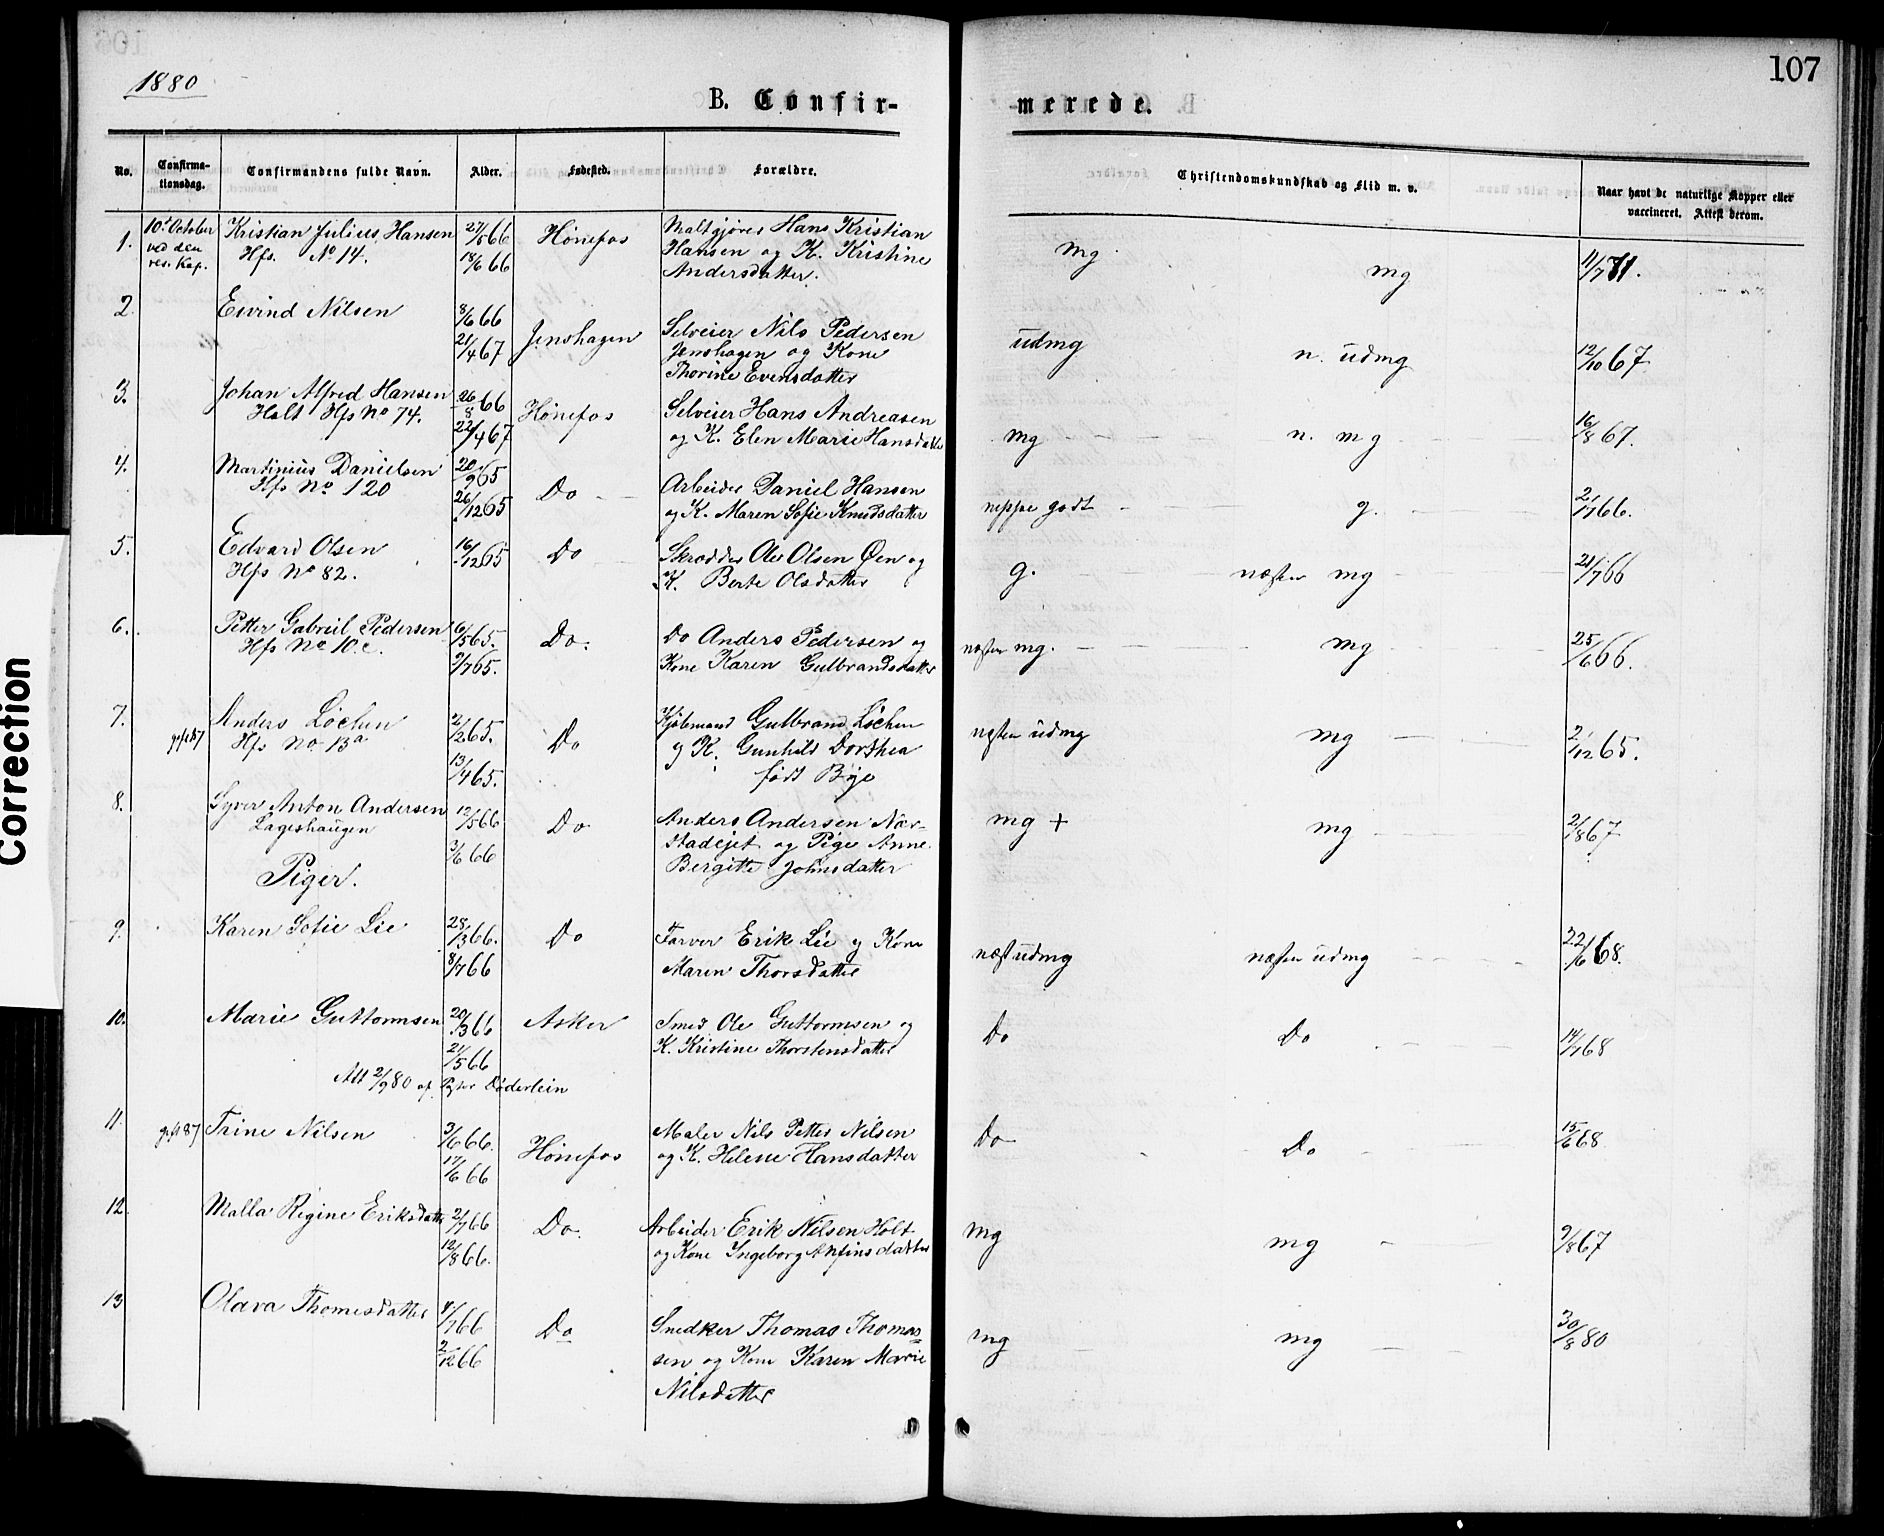 107
1880
B. Confir-
merede.
No.
Confirma-
tionsdag.
Confirmandens fulde Navn.
Alder.
Fødested.
Forældre.
Christendomskundskab og Flid m. v.
Naar havt de naturlige Kopper eller
vaccineret. Attest derom.
1. 10d October Kristian Julius Hansen 27/5 66 Hønefos Maltgjører Hans Kristian mg mg 11/7 71.
ved den Hfs. No 14. 18/6 66 Hansen og K. Kristine
res. Kap. Andersdatter.
2. Eivind Nilsen 8/6 66 Jenshagen Selveier Nils Pedersen udmg n. udmg 12/10 67
21/4 67 Jenshagen og Kone
Thorine Evensdatter
3. Johan Alfred Hansen 26/8 66 Hønefos Selveier Hans Andreasen mg n. mg 16/8 67.
Holt Hfs No 74. 22/4 67 og K. Elen Marie Hansdatter
4. Martinius Danielsen 20/9 65 Do Arbeider Daniel Hansen neppe godt g. 2/7 66.
Hfs No 120 26/12 65 og K. Maren Sofie Knudsdatter
5. Edvard Olsen 16/12 65 Do Skrædder Ole Olsen Øen og g. næsten mg 21/7 66
Hfs No 82. K. Berte Olsdatter
6. Petter Gabriel Pedersen 6/5 65. Do. Do Anders Pedersen og næsten mg. mg 25/6 66.
Hfs No 10 c. 9/7 65. Kone Karen Gulbrandsdatter
7. Anders Løchen 2/2 65. Do Kjøbmand Gulbrand Løchen næsten udmg mg 2/12 65.
Hfs No 13a 13/4 65. og K. Gunhild Dorthea
født Bye
8. Syver Anton Andersen 12/5 66 Do Anders Andersen Nær- mg + mg 2/8 67
Lageshaugen 3/6 66 stadejet og Pige Anne
Bergitte Johnsdatter
Piger.
9. Karen Sofie Lie 28/3 66. Do Farver Erik Lie og Kone næst udmg næsten udmg 22/6 68.
8/7 66 Maren Thorsdatter
10. Marie Guttormsen 20/3 66 Asker Smed Ole Guttormsen og Do Do 14/7 68
21/5 66 K. Kristine Thorstensdatter
Att 2/9 80 af Døderlein
11. Trine Nilsen 3/6 66. Hønefos Maler Nils Petter Nilsen Do Do 15/6 68
17/6 66 og K. Helene Hansdatter
12. Malla Regine Eriksdatter 2/7 66 Do. Arbeider Erik Nilsen Holt mg mg 9/8 67
12/8 66. og Kone Ingeborg Anfinsdatter
13 Olava Thomesdatter 4/7 66 Do Snedker Thomas Thomas- mg mg 30/8 80
2/12 66 sen og Kone Karen Marie
Nilsdatter
Correction